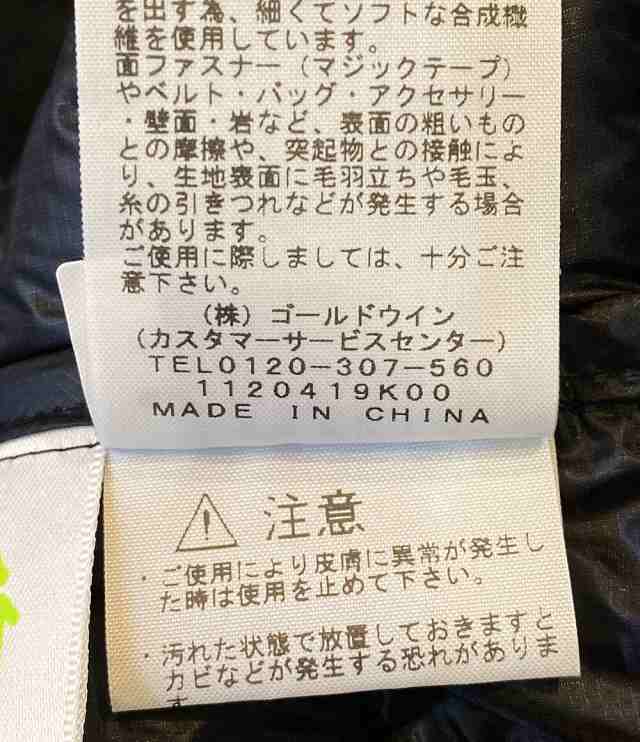 を出す為、細くてソフトな合成繊
維を使用しています。
面ファスナー（マジックテープ）
やベルト・バッグ・アクセサリー
・壁面・岩など、表面の粗いもの
との摩擦や、突起物との接触によ
り、生地表面に毛羽立ちや毛玉、
糸の引きつれなどが発生する場合
があります。
ご使用に際しましては、十分ご注
意下さい。
（株）ゴールドウイン
（カスタマーサービスセンター）
TEL0120-307-560
1120419K00
MADE IN CHINA
注意
・ご使用により皮膚に異常が発生し
た時は使用を止めて下さい。
・汚れた状態で放置しておきますと
カビなどが発生する恐れがありま
す